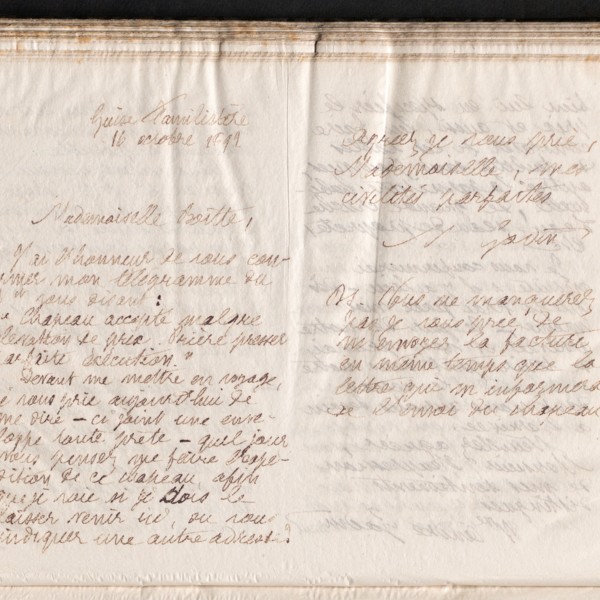 Guise Familistère
16 octobre 1891
Mademoiselle
J'ai l'honneur de vous con-
mer mon télégramme du
jour disant:
" Chapeau accepté malgré
élévation de prix. Prière presser
parfaite exécution."
Devant me mettre en voyage,
je vous prie aujourd'hui de
me dire - ci joint une enve-
loppe toute prête - quel jour
vous pensez me faire l'expé-
dition de ce chapeau, afin
que je voie si je dois le
laisser venir ici, ou vous
indiquer une autre adresse.
Agréez je vous prie,
Mademoiselle, mes
civilités parfaites
Godin
PS. Vous ne manquerez
pas je vous prie de
m'envoyer la facture
en même temps que la
lettre qui m'informera
de l'envoi du chapeau